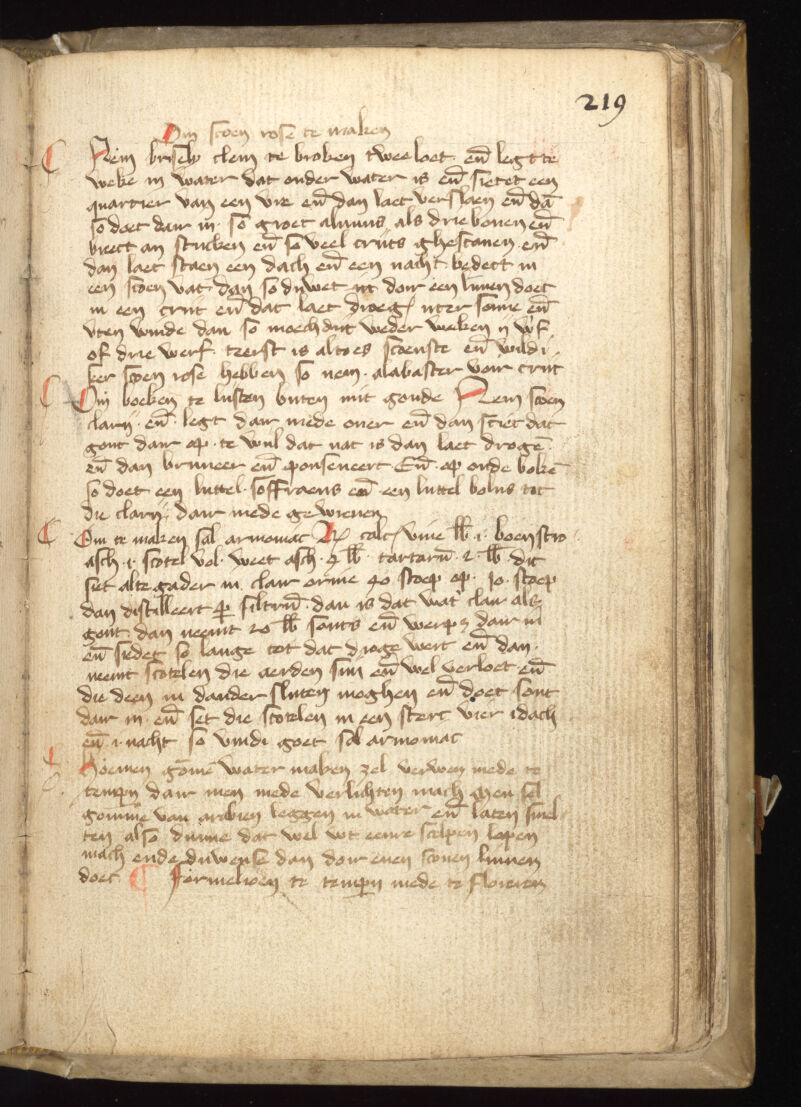 219
Om scoen rose te maken
Nem brisely clein te broken twee loet en̄ legt te
weke in water dat onder water is en̄ sietet een
quartier van een vre en̄ dan laet verslaen en̄ dā
so doet dair in so groet aluuns als drie bonen en̄
biect an sticken en̄ so veel crijts ghescauen en̄
dan laet staen een dach en̄ een nacht bedect in
een scoen vat dan so duwet ut doir een linnen doec
in een crijt en̄ dat laet droegē uter sonne en̄
vten winde dan so moechdijt weder weken ij werf
of drie werf terst is altoes scoenste en̄ wildi
ker scoen rose hebben so nem alabaster voir crijt
Om boeken te lusten buten mit goude Nem scoen
clarij en̄ legt dair mede ouer en̄ dan striet dat
gout dair op te wijl dat nat is dan laet drogē
en̄ dan bruneer en̄ ponseneert En̄ op oude bokē
so doet een luttel soffraens en̄ een luttel bolus tot
die clarij dair mede gewreuen
Om te maken sal armoniac Rx calc viue lb i boenstro
asch i scotel vol weet asch 4 lb tartarū 2 lb dit
siet alte gader in clair orine 40 stoep op 10 stoep
dan distilleert p filtrū dan is dat wat clair als
gout dan neemt 20 lb souts en̄ werpz dair in
en̄ siedet so lange tot dat droge wert en̄ dan
neemt scotelen die aerden sijn en̄ wel verloet en̄
die deen in dander sluten moghen en̄ doet sout
dair in en̄ set die scotelen in een sterc vier i dach
en̄ i nacht so vindi goet sal armoniac
Hoemen gōme water maken zel verwen mede te
tempn dair men mede verlichten mach Men sel
gomme van arabien leggen in water en̄ laten smel
ten also dunne dat wel wt eenre scelpen lopen
mach ende duwense dan doir enen sconen linnen
doec Fermelioen te tempn mede te floreren